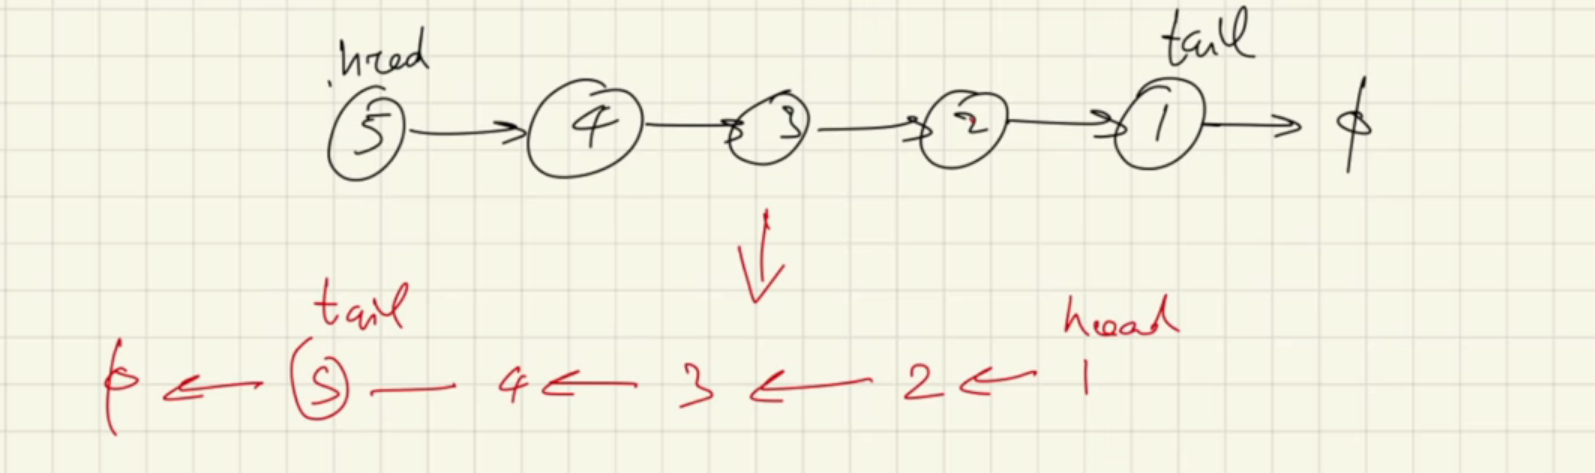 head tail
5 → 4 → 3 → 2 → 1 → ϕ
tail head
ϕ ← 5 — 4 ← 3 ← 2 ← 1